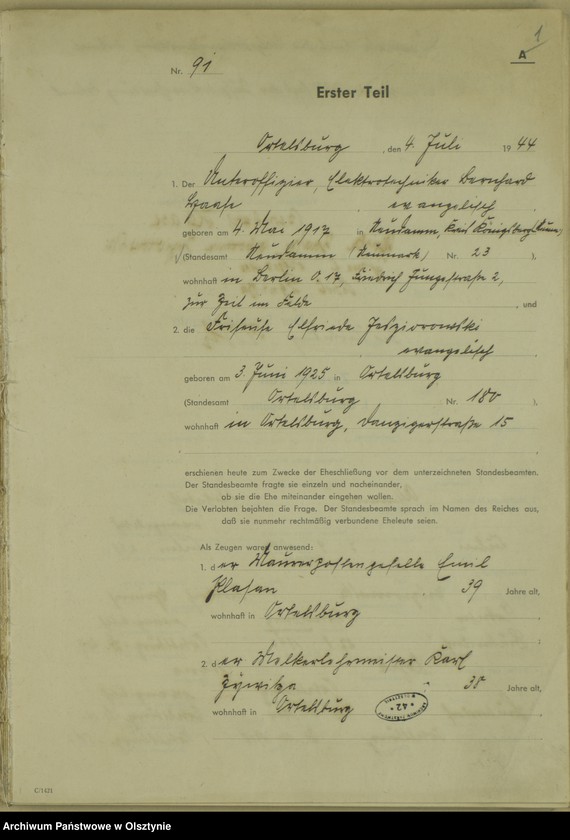 1
A
Nr. 91
Erster Teil
Ortelsburg, den 4. Juli 1944
1. Der Unteroffizier, Elektrotechniker Bernhard
Haase evangelisch
geboren am 4. Mai 1917 in Neudamm, Kreis Königsberg
(Standesamt Neudamm (Neumark) Nr. 23 ),
wohnhaft in Berlin O.17, Friedrich Jungestraße 2,
zur Zeit im Felde, und
2. die Friseuse Elfriede Jeziorowski
evangelisch
geboren am 3. Juni 1925 in Ortelsburg
(Standesamt Ortelsburg Nr. 180 ),
wohnhaft in Ortelsburg, Danzigerstraße 15
erschienen heute zum Zwecke der Eheschließung vor dem unterzeichneten Standesbeamten.
Der Standesbeamte fragte sie einzeln und nacheinander,
ob sie die Ehe miteinander eingehen wollen.
Die Verlobten bejahten die Frage. Der Standesbeamte sprach im Namen des Reiches aus,
daß sie nunmehr rechtmäßig verbundene Eheleute seien.
Als Zeugen waren anwesend:
1. der Emil
39 Jahre alt,
wohnhaft in Ortelsburg
2. der Melkerlehrmeister Karl
38 Jahre alt,
wohnhaft in Ortelsburg
* 42 *
C/1431
Archiwum Państwowe w Olsztynie